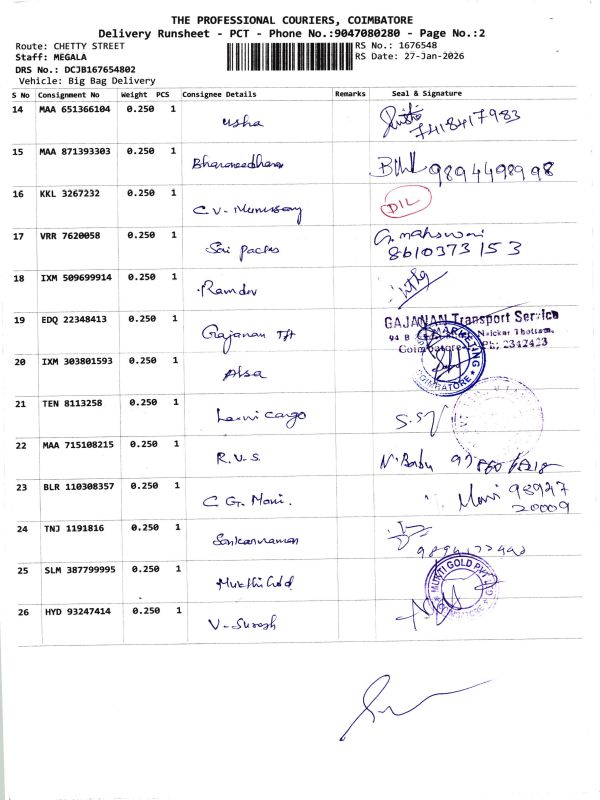 THE PROFESSIONAL COURIERS, COIMBATORE
Delivery Runsheet - PCT - Phone No.:9047080280 - Page No.:2
Route: CHETTY STREET
Staff: MEGALA
DRS No.: DCJB167654802
Vehicle: Big Bag Delivery
RS No.: 1676548
RS Date: 27-Jan-2026
S No Consignment No Weight PCS Consignee Details Remarks Seal & Signature
14 MAA 651366104 0.250 1 usha 7418417983
15 MAA 871393303 0.250 1 9894498998
16 KKL 3267232 0.250 1 C.V. DIL
17 VRR 7620058 0.250 1 Sai packs G. maheswari
8610373153
18 IXM 509699914 0.250 1 Ramdev
19 EDQ 22348413 0.250 1 Gajanan Tpt GAJANAN Transport Service
94 B Naickar Thottam,
Coimbatore- Ph; 2342423
20 IXM 303801593 0.250 1 Alsa MARKETING COIMBATORE
21 TEN 8113258 0.250 1 Laxmi Cargo
22 MAA 715108215 0.250 1 R.V.S. N. Babu
23 BLR 110308357 0.250 1 C G. Mani. Mani 98947
20009
24 TNJ 1191816 0.250 1
25 SLM 387799995 0.250 1 Mukthi Gold MUKTI GOLD PVT
26 HYD 93247414 0.250 1 V- Suresh